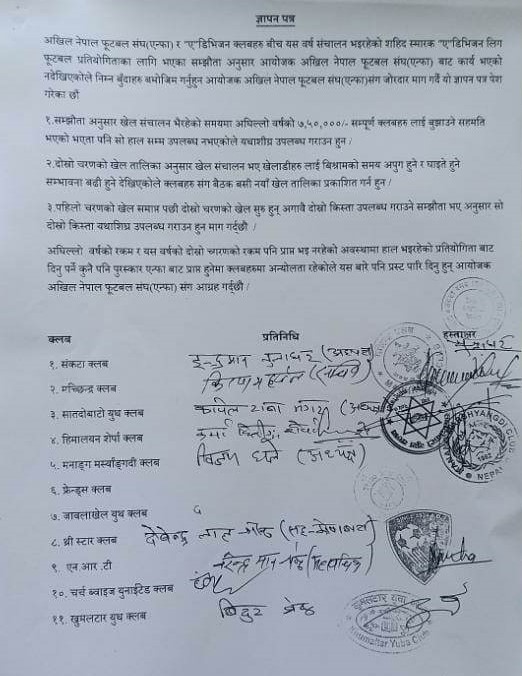 ज्ञापन पत्र
अखिल नेपाल फूटबल संघ(एन्फा) र "ए"डिभिजन क्लबहरु बीच यस वर्ष संचालन भइरहेको शहिद स्मारक "ए"डिभिजन लिग
फूटबल प्रतियोगिताका लागि भएका सम्झौता अनुसार आयोजक अखिल नेपाल फूटबल संघ(एन्फा) बाट कार्य भएको
नदेखिएकोले निम्न बुँदाहरु बमोजिम गर्नुहुन आयोजक अखिल नेपाल फूटबल संघ(एन्फा)संग जोरदार माग गर्दै यो ज्ञापन पत्र पेश
गरेका छौं
१.सम्झौता अनुसार खेल संचालन भैरहेको समयमा अघिल्लो वर्षको ७,५०,०००/- सम्पूर्ण क्लबहरु लाई बुझाउने सहमति
भएको भएता पनि सो हाल सम्म उपलब्ध नभएकोले यथाशीघ्र उपलब्ध गराउन हुन /
२.दोस्रो चरणको खेल तालिका अनुसार खेल संचालन भए खेलाडीहरु लाई बिश्रामको समय अपुग हुने र घाइते हुने
सम्भावना बढी हुने देखिएकोले क्लबहरु संग बैठक बसी नयाँ खेल तालिका प्रकाशित गर्न हुन /
३.पहिलो चरणको खेल समाप्त पछी दोस्रो चरणको खेल सुरु हुनु अगावै दोस्रो किस्ता उपलब्ध गराउने सम्झौता भए अनुसार सो
दोस्रो किस्ता यथाशिघ्र उपलब्ध गराउन हुन माग गर्दछौं /
अघिल्लो वर्षको रकम र यस वर्षको दोस्रो चरणको रकम पनि प्राप्त भइ नरहेको अवस्थामा हाल भइरहेको प्रतियोगिता बाट
दिनु पर्ने कुनै पनि पुरस्कार एन्फा बाट प्राप्त हुनेमा क्लबहरुमा अन्योलता रहेकोले यस बारे पनि प्रस्ट पारि दिनु हुन आयोजक
अखिल नेपाल फूटबल संघ(एन्फा) संग आग्रह गर्दछौं /
क्लब प्रतिनिधि हस्ताक्षर
१. संकटा क्लब
२. मच्छिन्द्र क्लब
३. सातदोबाटो युथ क्लब
४. हिमालयन शेर्पा क्लब
५. मनाङ्ग मर्स्याङ्गदी क्लब (अध्यक्ष)
६. फ्रेन्ड्स क्लब
७. जावलाखेल युथ क्लब
८. थ्री स्टार क्लब
९. एन.आर.टी
१०. चर्च ब्वाइज युनाईटेड क्लब
११. खुमलटार युथ क्लब
Khumaltar Yuba Club